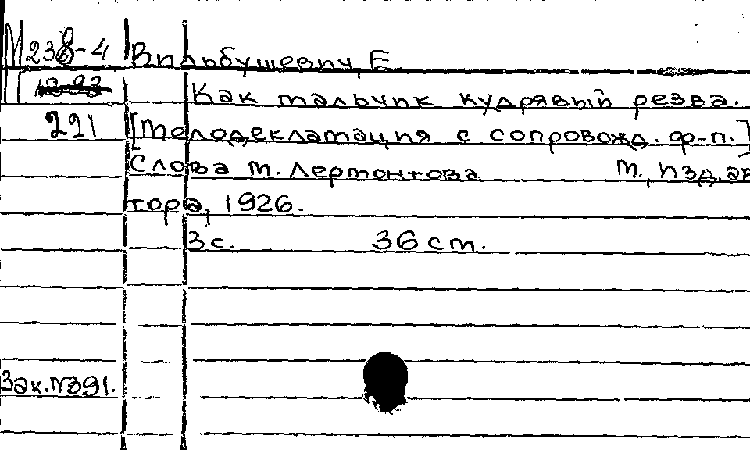 М238-4 Вильбушевич, Е
Как мальчик кудрявый резва.
221 [Мелодекламация с сопровожд. ф-п.]
Слова М. Лермонтова М., изд. ав
тора, 1926.
3 с. 36 см.
Зак. №391.